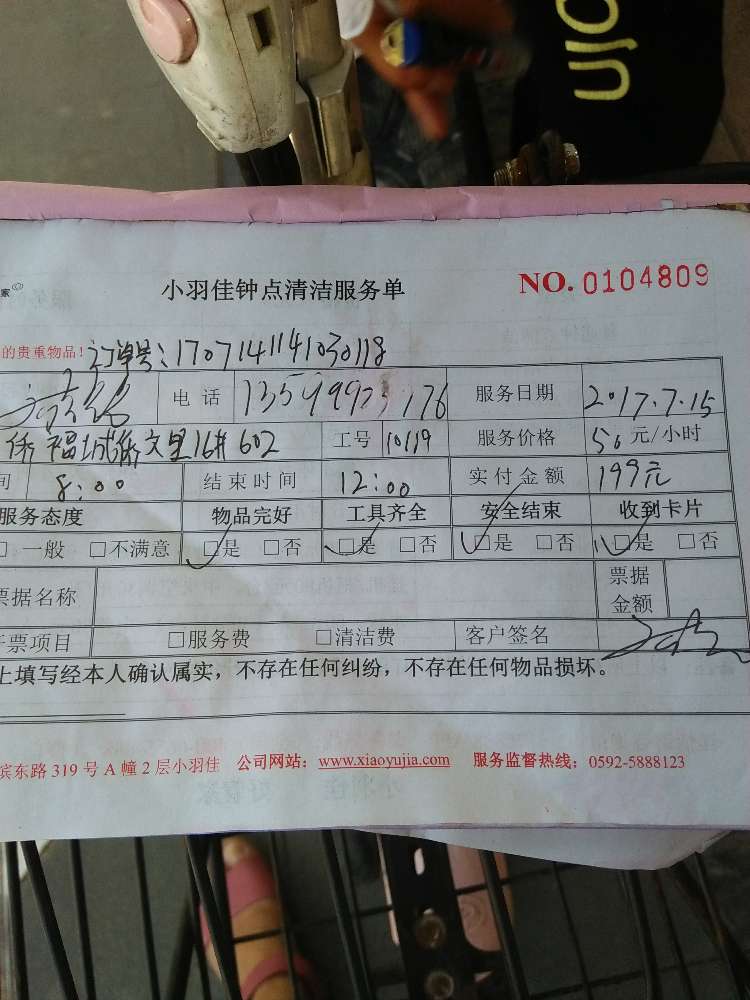 ujo
家 小羽佳钟点清洁服务单 NO. 0104809
的贵重物品! 订单号:1707141141030118
电话 服务日期 2017.7.15
侨福城 文里16# 602 工号 10119 服务价格 50元/小时
间 8:00 结束时间 12:00 实付金额 199元
服务态度 物品完好 工具齐全 安全结束 收到卡片
□一般 □不满意 □是 □否 □是 □否 □是 □否 □是 □否
票据名称 票据金额
开票项目 □服务费 □清洁费 客户签名
上填写经本人确认属实，不存在任何纠纷，不存在任何物品损坏。
滨东路319号A幢2层小羽佳 公司网站：www.xiaoyujia.com 服务监督热线：0592-5888123